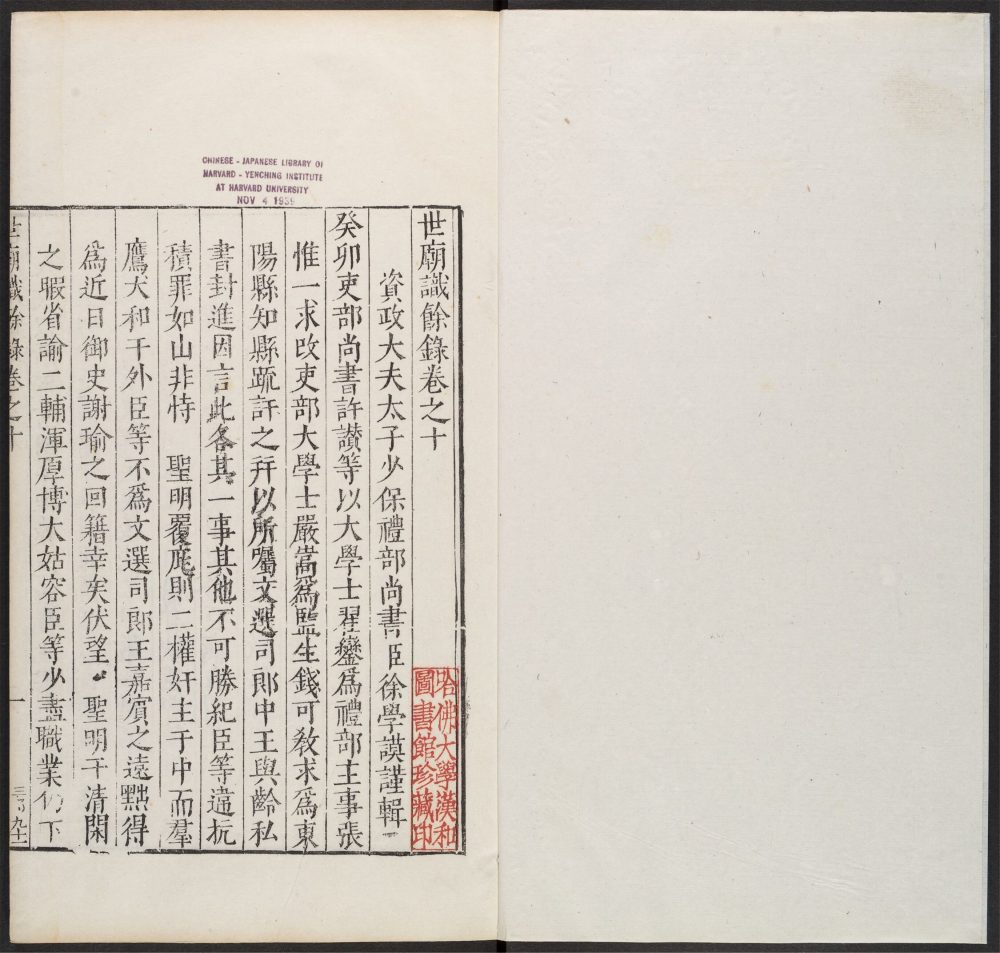 CHINESE - JAPANESE LIBRARY OF
HARVARD - YENCHING INSTITUTE
AT HARVARD UNIVERSITY
NOV 4 1939
世廟識餘錄卷之十
資政大夫太子少保禮部尚書臣徐學謨謹輯
癸卯吏部尚書許讃等以大學士翟鑾爲禮部主事張
惟一求改吏部大學士嚴嵩爲監生錢可教求爲東
陽縣知縣䟽訐之并以所囑文選司郎中王與齡私
書封進因言此各其一事其他不可勝紀臣等違抗
積罪如山非恃　聖明覆庇則二權奸主于中而羣
鷹犬和于外臣等不爲文選司郎王嘉賓之遠黜得
爲近日御史謝瑜之回籍幸矣伏望　聖明于清閑
之暇省諭二輔渾厚博大姑容臣等少盡職業仍下
世廟識餘錄卷之十
一
哈佛大學漢和
圖書館珍藏印